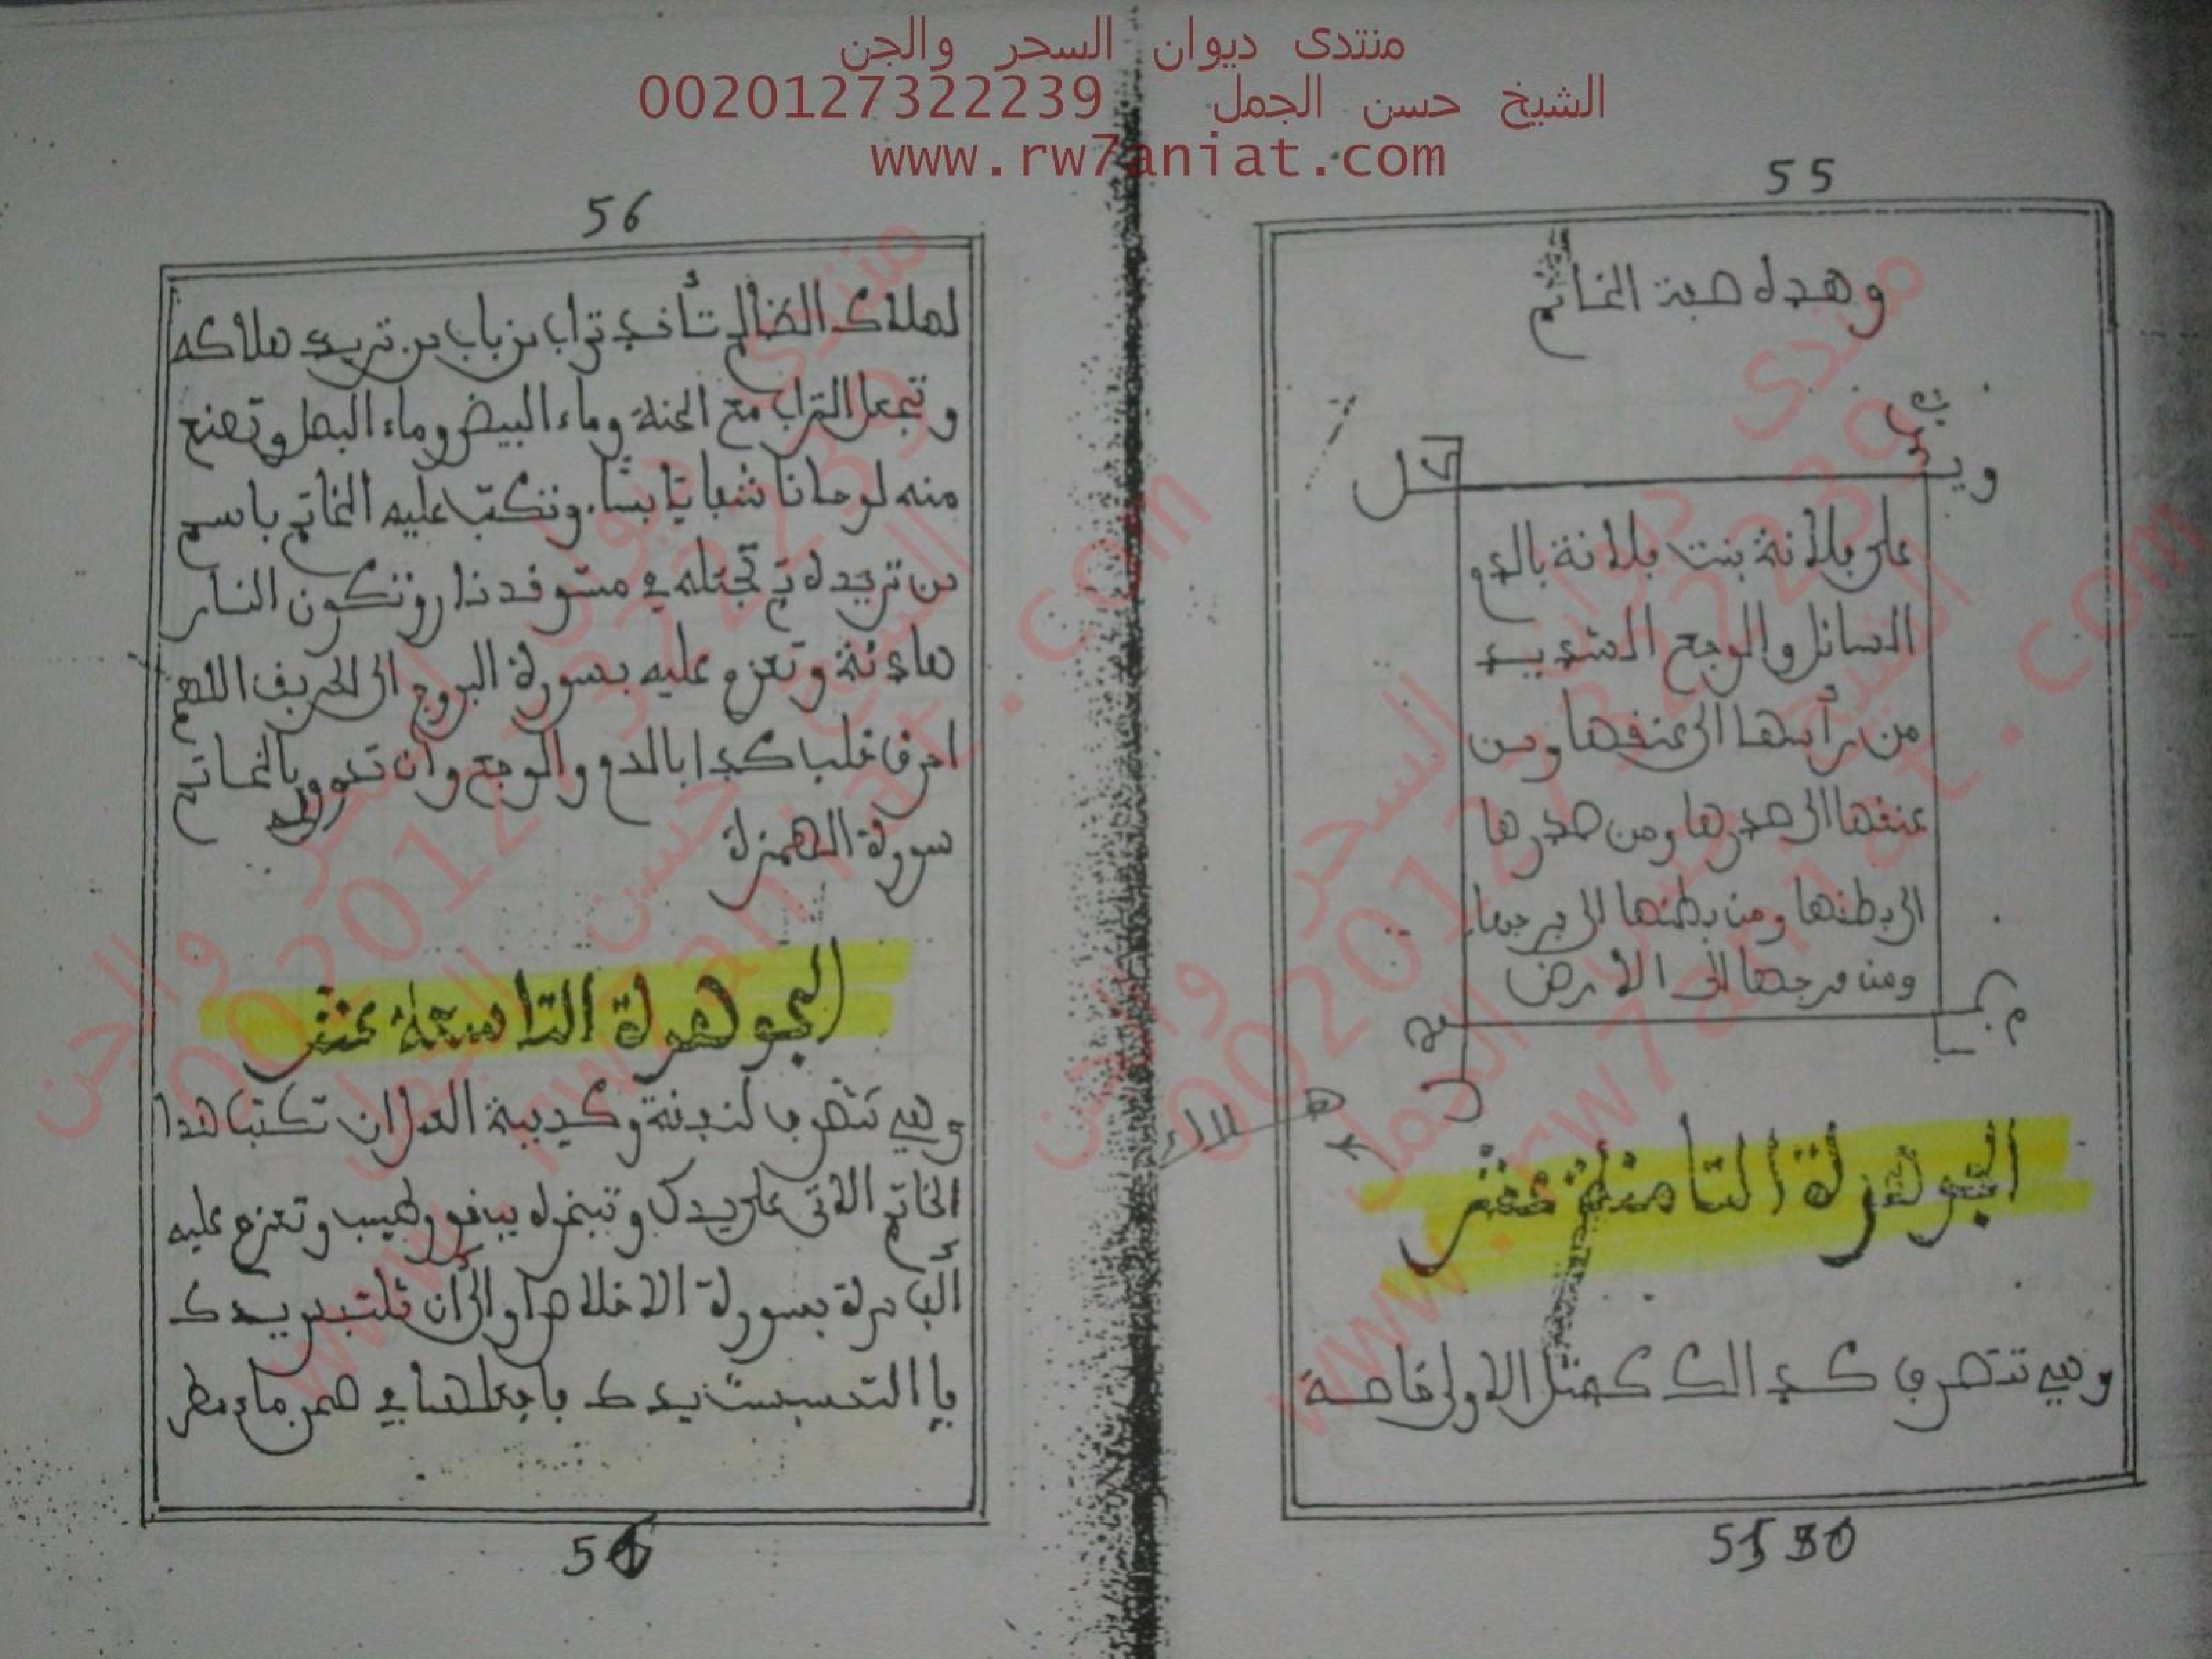 منتدى ديوان السحر والجن
الشيخ حسن الجمل 0020127322239
www.rw7aniat.com
55
وهده صفة الخاتم
على فلانة بنت فلانة بالدم
السائل والوجع الشديد
من رأسها الى عنقها ومن
عنقها الى صدرها ومن صدرها
الى بطنها ومن بطنها الى فرجها
ومن فرجها الى الارض
الجوهرة التامنة عشر
وهي تتصرف كدالك كمتل الاولى خاصة
هلاك
56
لهلاك الضالم تأخد تراب من باب من تريد هلاكه
وتجعل التراب مع الحنة وماء البيض وماء البصل وتصنع
منه لوحا ناشفا يابسا وتكتب عليه الخاتم باسم
من تريده تم تجعله في مستوقد نار وتكون النار
هادئة وتعزم عليه بسورة البروج الى الحريق اللهم
احرق قلب كدا بالدم والوجع وان تدور بالخاتم
سورة الهمزة
الجوهرة التاسعة عشر
وهي تتصرف لندنة وكديبة العدا ان تكتب هدا
الخاتم الاتي على يدك وتبخره ببخور طيب وتعزم عليه
ألف مرة بسورة الاخلاص يدك
يدك فاجعلها في صحن ماء مطر
56